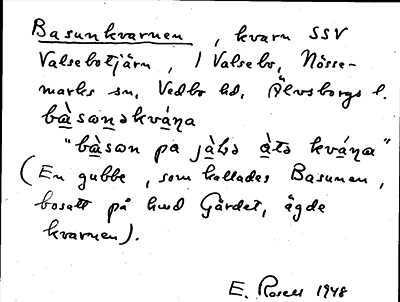 Basunkvarnen, kvarn SSV
Valsebotjärn, i Valsebo, Nösse-
marks sn, Vedbo hd, Älvsborgs l.
bàsonəkváɳa
"bàson på jàLə àtə kváɳa"
(En gubbe, som kallades Basunen,
bosatt på hmd Gärdet, ägde
kvarnen).
E. Rosell 1948